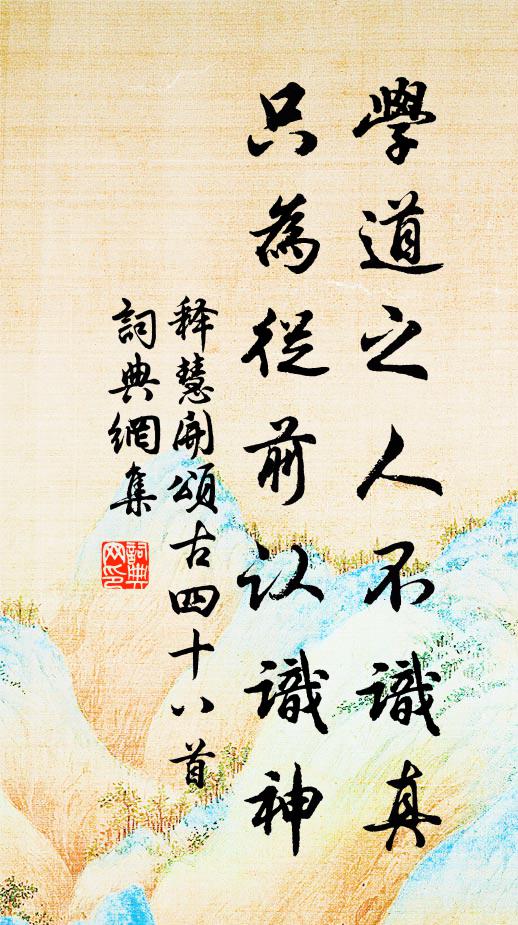 學道之人不識真
只為從前认識神
释慧開頌古四十八首
詞典網集
詞典网印